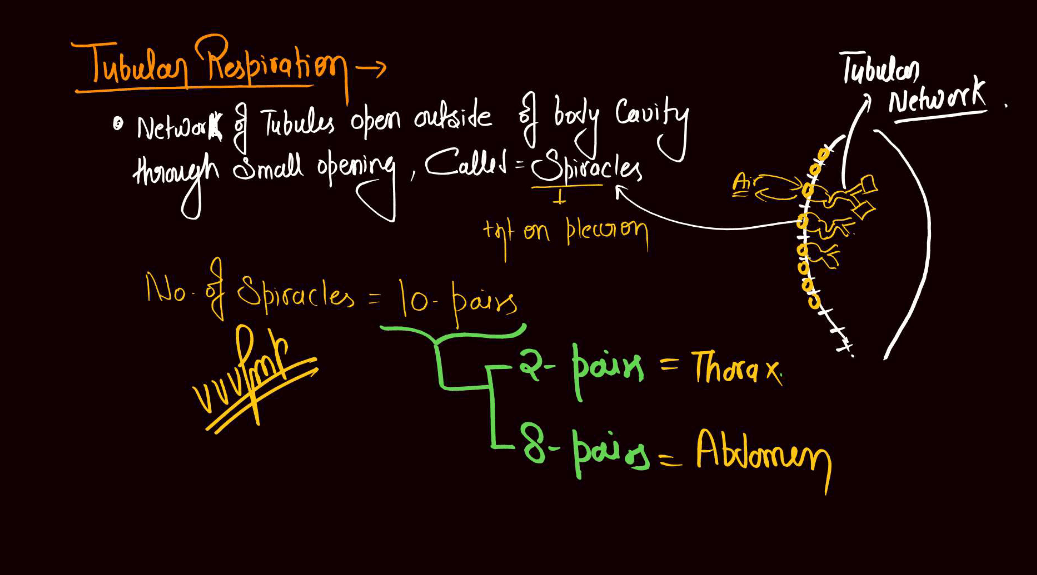 Tubular Respiration →
• Network of Tubules open outside of body Cavity
through Small opening, Called = Spiracles
on pleuron
No. of Spiracles = 10- pairs
VVVImp
2- pairs = Thorax.
8- pairs = Abdomen
Tubular
Network.
Air